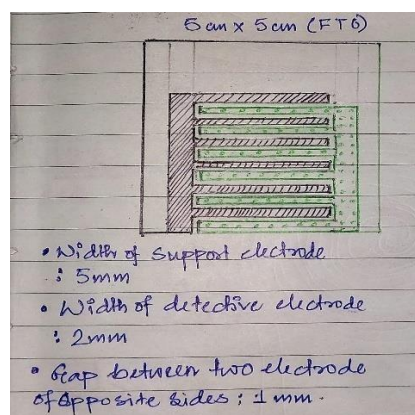 5 cm x 5 cm (FTO)
• Width of support electrode
: 5mm
• Width of detective electrode
: 2mm
• Gap between two electrode
of opposite sides : 1 mm.